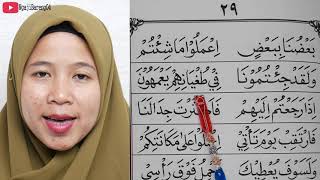 NgajiBarengQu
٢٩
بَعْضُنَا بِبَعْضٍ اِعْمَلُوْا مَا شِئْتُمْ
وَلَقَدْ جِئْتُمُوْنَا فِيْ طُغْيَانِهِمْ يَعْمَهُوْنَ
اِذَا رَجَعْتُمْ اِلَيْهِمْ جِدَالَنَا
فَارْتَقِبْ يَوْمَ تَأْتِيْ عَلٰى مَكَانَتِكُمْ
وَلَسَوْفَ يُعْطِيْكَ فَوْقَ رَأْسِيْ